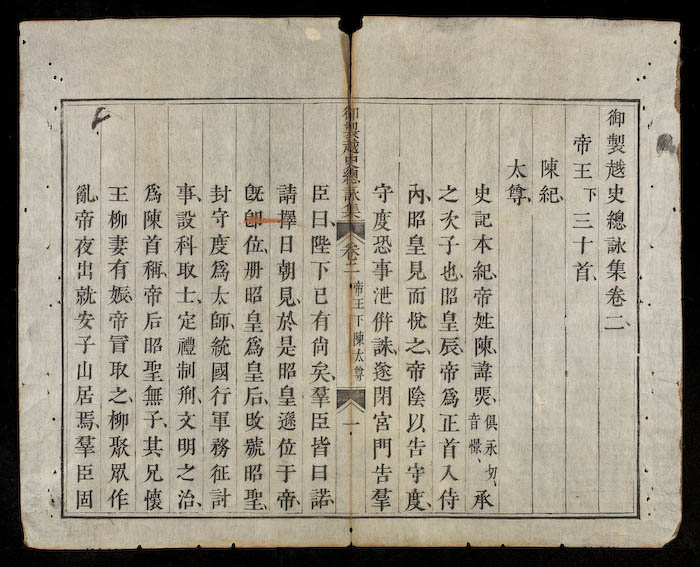 御製越史總詠集卷二
帝王下三十首
陳紀
太尊
史記本紀帝姓陳諱煚俱永切音憬承
之次子也昭皇辰帝爲正首入侍
內昭皇見而悅之帝陰以告守度
守度恐事泄倂誅遂閉宮門告羣
御製越史總詠集 卷二 帝王下陳太尊 一
臣曰陛下已有尙矣羣臣皆曰諾
請擇日朝見於是昭皇遜位于帝
旣卽位册昭皇爲皇后改號昭聖
封守度爲太師統國行軍務征討
事設科取士定禮制刑文明之治
爲陳首稱帝后昭聖無子其兄懷
王柳妻有娠帝冒取之柳聚眾作
亂帝夜出就安子山居焉羣臣固